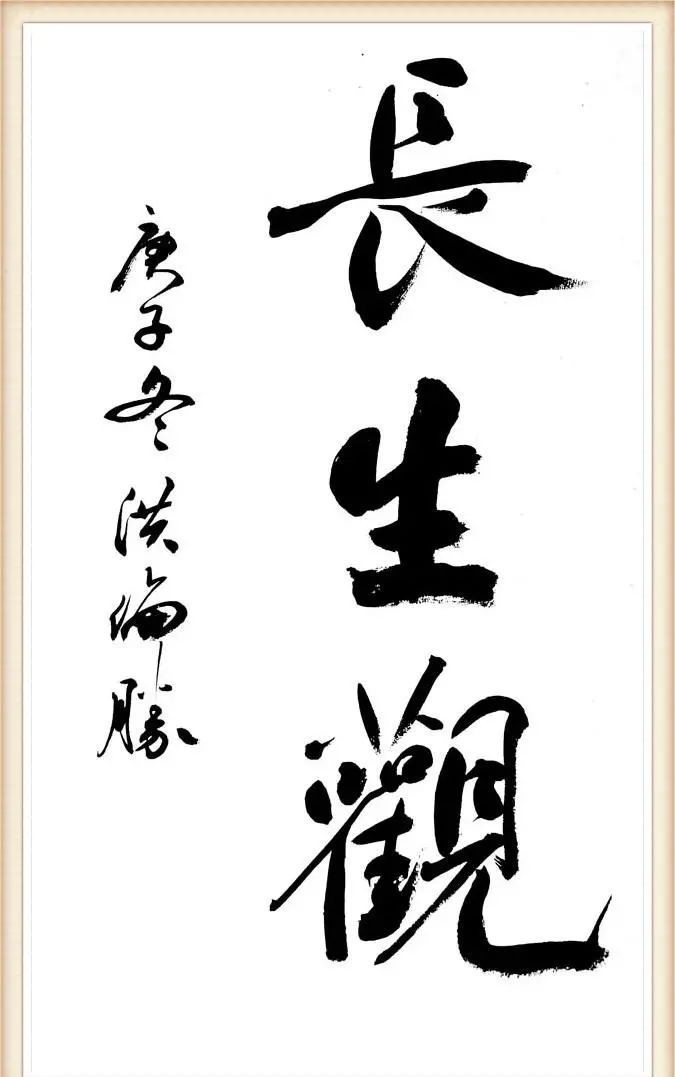 長生觀
庚子冬洪倫勝